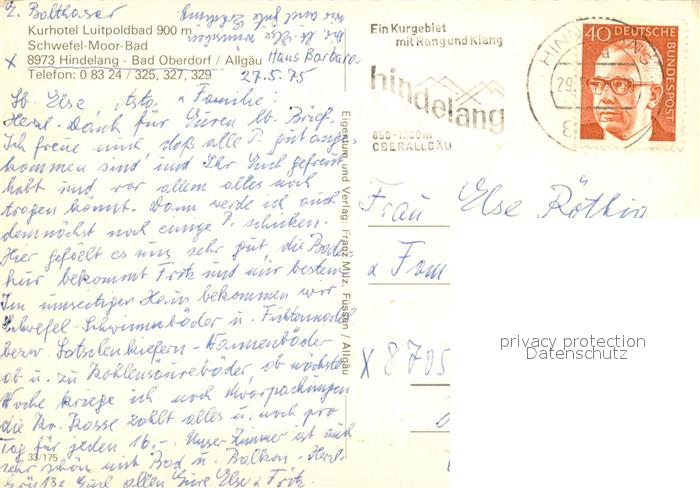 z. Balthasar
Kurhotel Luitpoldbad 900 m
Schwefel-Moor-Bad
x 8973 Hindelang - Bad Oberdorf / Allgäu
Telefon: 0 83 24 / 325, 327, 329
Haus Barbara
27.5.75
Lb. Else, u. Familie!
Herzl. Dank für Euren lb. Brief.
Ich freue mich daß alle P. gut ange-
kommen sind und Ihr Euch gefreut
habt und vor allem alles noch
tragen könnt. Dann werde ich auch
demnächst noch einige P. schicken.
Hier gefällt es uns sehr gut, die Bade-
kur bekommt Fritz und mir bestens
Im umseitigen Haus bekommen wir
Schwefel-Schwimmbäder u. Fichtennadel
bezw. Latschenkiefern-Wannenbäder
ab u. zu Kohlensäurebäder ab nächste
Woche kriege ich noch Moorpackungen
die Kr. Kasse zahlt alles u. noch pro
Tag für jeden 16.-. Unser Zimmer ist auch
sehr schön mit Bad u. Balkon. Herzl.
Grüße Euch allen Eure Else u. Fritz.
33/175
Eigentum und Verlag: Franz Milz, Füssen / Allgäu
Ein Kurgebiet
mit Rang und Klang
hindelang
850-1200m
OBERALLGÄU
HINDELANG
29.
40 DEUTSCHE
BUNDESPOST
Frau Else Röthig
u. Fam
x 8705
privacy protection
Datenschutz